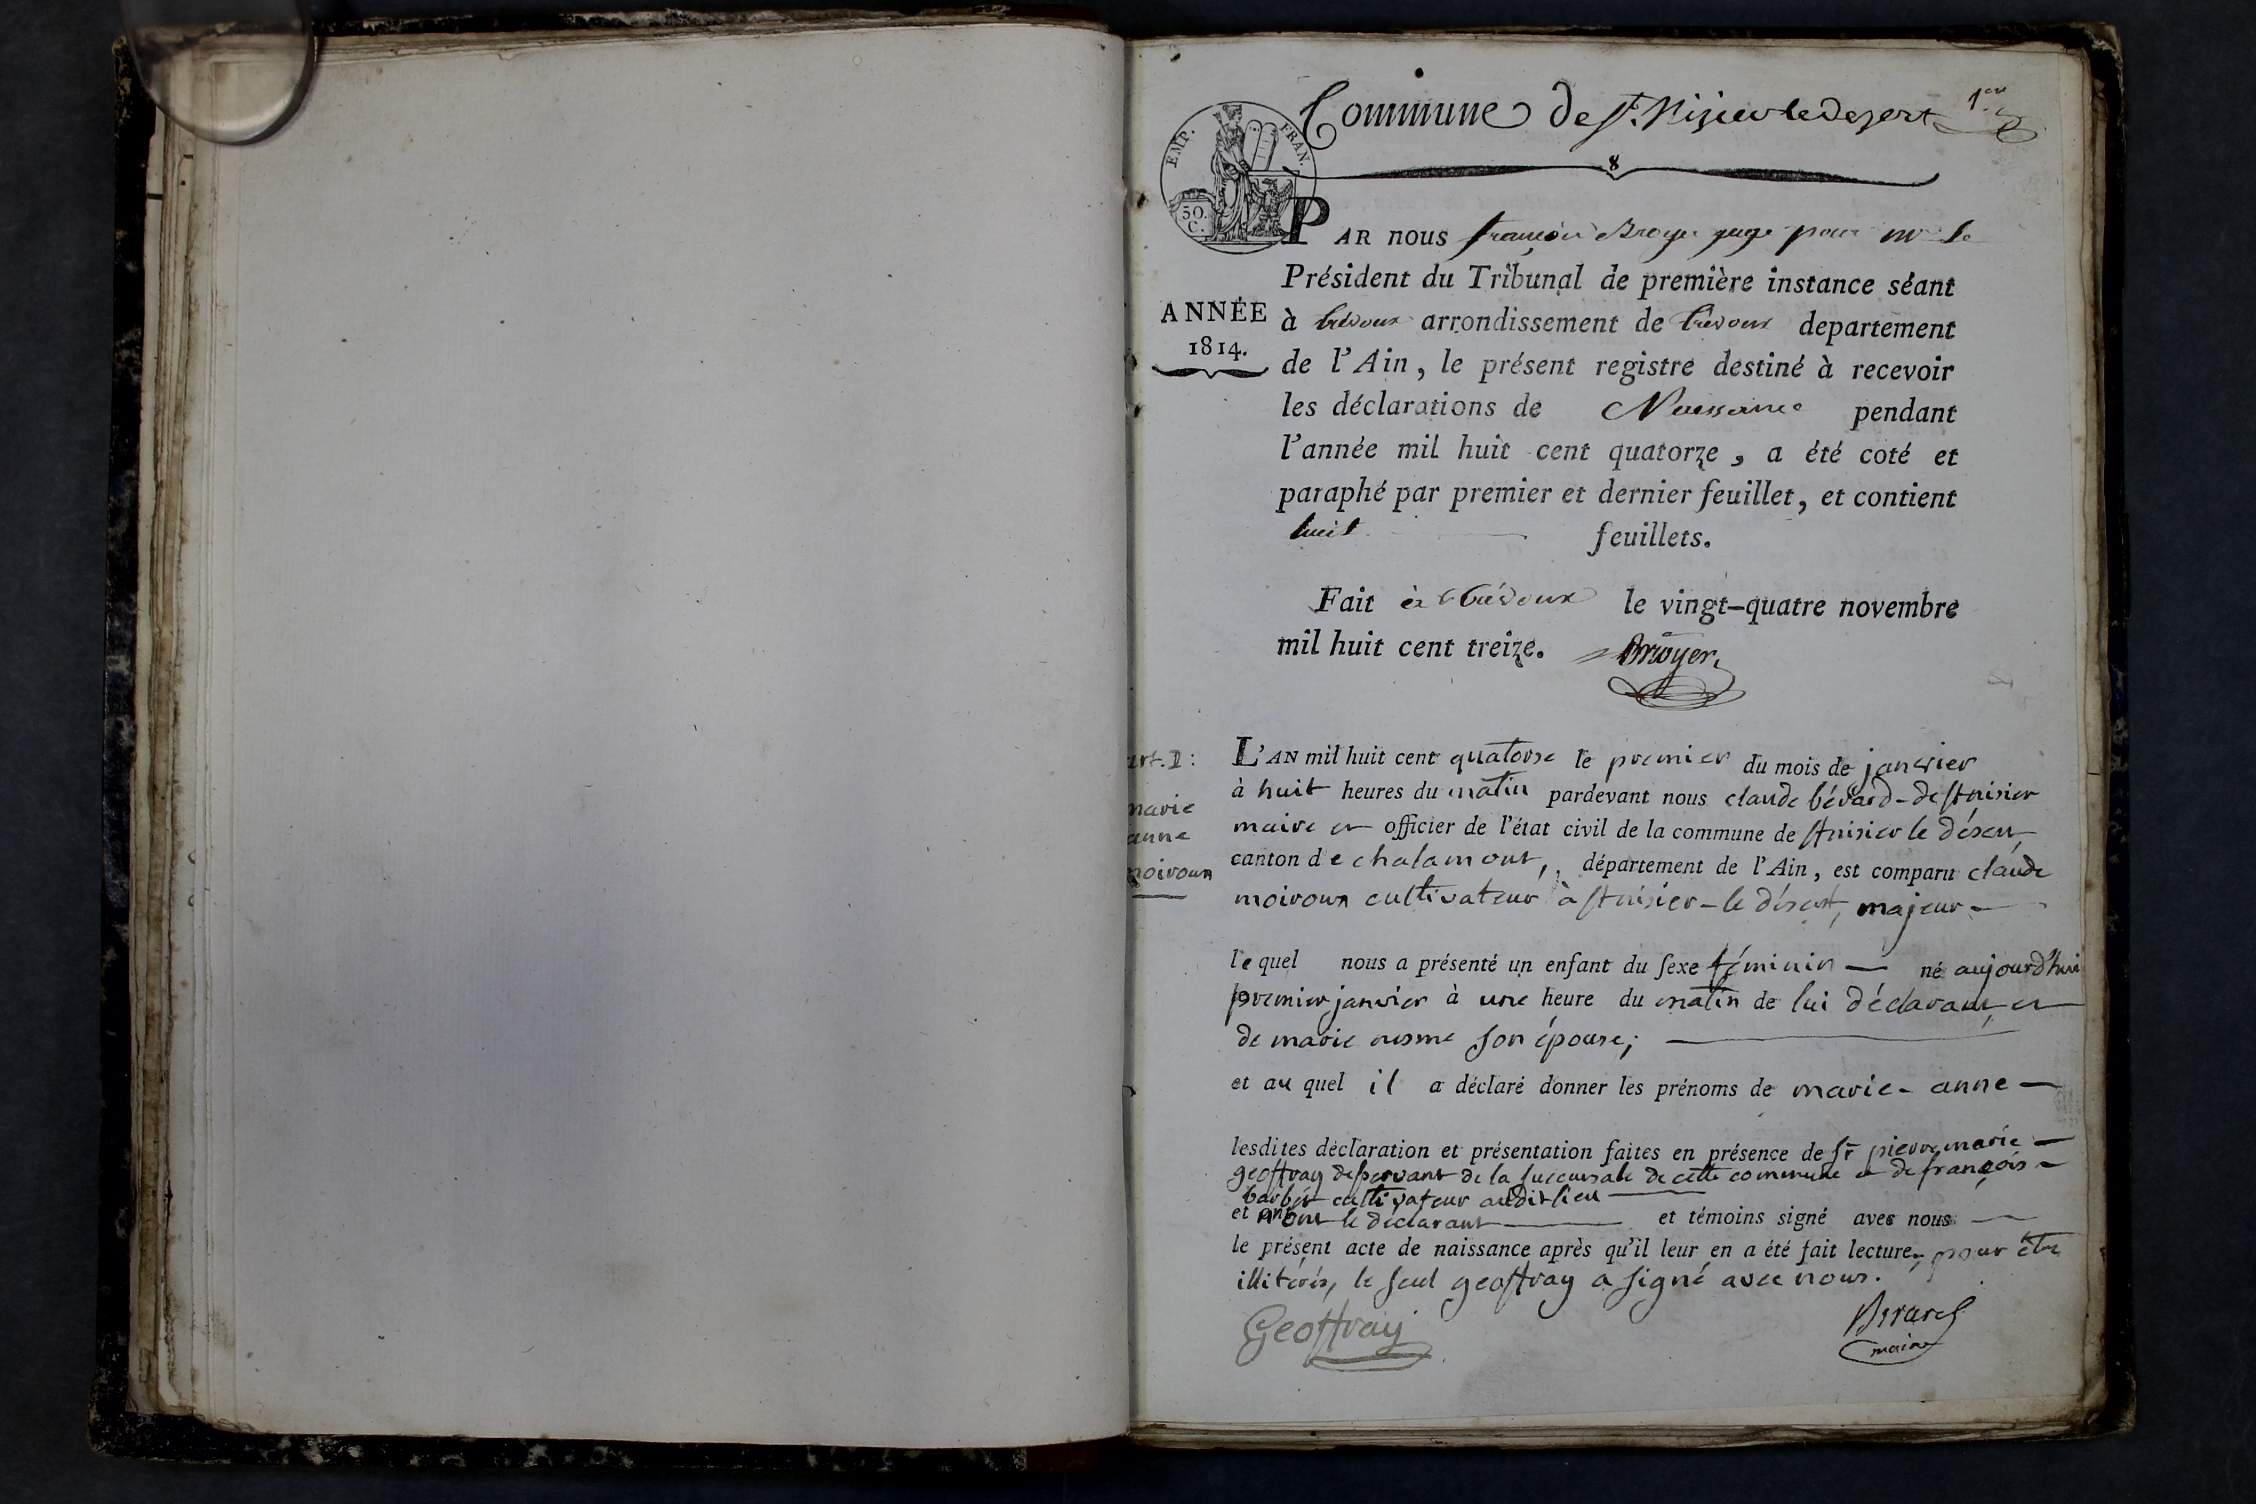 Commune de St. Nizier le Dezert 1er
8
EMP. FRAN.
50. C.
PAR nous françois Broyer juge pour mr le
Président du Tribunal de première instance séant
ANNÉE
1814.
à trévoux arrondissement de trévoux departement
de l'Ain, le présent registre destiné à recevoir
les déclarations de Naissance pendant
l'année mil huit cent quatorze, a été coté et
paraphé par premier et dernier feuillet, et contient
huit feuillets.
Fait à trévoux le vingt-quatre novembre
mil huit cent treize. Broyer
art. 1:
marie
anne
moiroun
L'AN mil huit cent quatorse le premier du mois de janvier
à huit heures du matin pardevant nous claude bérard-de st nisier
maire et officier de l'état civil de la commune de st nisier le désert
canton de chalamont, département de l'Ain, est comparu claude
moiroun cultivateur à st nisier-le désert, majeur
le quel nous a présenté un enfant du sexe féminin né aujourd'hui
premier janvier à une heure du matin de lui déclarant, et
de marie nesme son épouse;
et au quel il a déclaré donner les prénoms de marie-anne
lesdites déclaration et présentation faites en présence de sr pierre marie
geoffray desservant de la succursale de cette commune et de françois
barbét cultivateur audit lieu
et n'ont le déclarant et témoins signé avec nous
le présent acte de naissance après qu'il leur en a été fait lecture, pour être
illitérés, le seul geoffray a signé avec nous.
Geoffray
Berard
maire